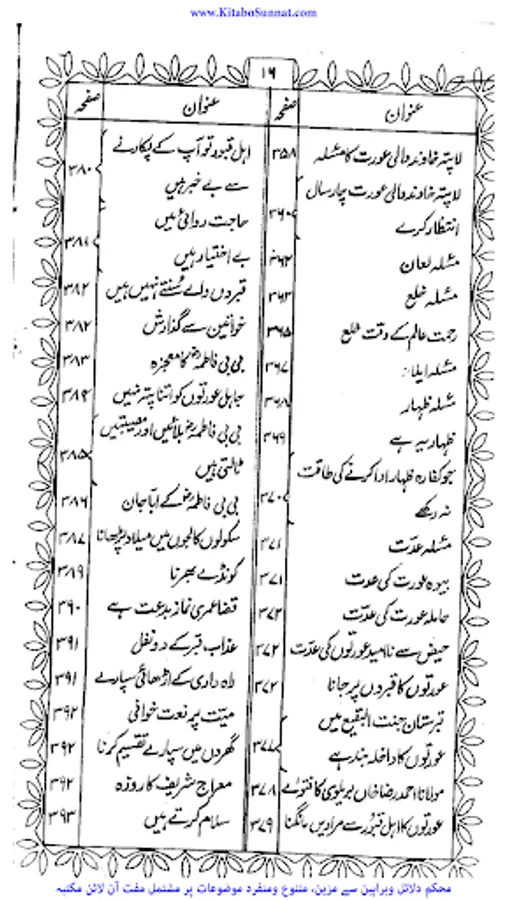 www.KitaboSunnat.com
۱۶
عنوان صفحہ
لاپتہ خاوند والی عورت کا مسئلہ ۳۵۸
لاپتہ خاوند والی عورت چار سال
انتظار کرے ۳۶۰
مسئلہ لعان ۳۶۲
مسئلہ خلع ۳۶۳
رحمت عالم کے وقت خلع ۳۶۵
مسئلہ ایلاء: ۳۶۷
مسئلہ ظہار ۳۶۸
ظہار یہ ہے ۳۶۹
جو کفارہ ظہار ادا کرنے کی طاقت
نہ رکھے ۳۷۰
مسئلہ عدّت ۳۷۱
بیوہ عورت کی عدت ۳۷۱
حاملہ عورت کی عدّت ۳۷۲
حیض سے ناامید عورتوں کی عدّت ۳۷۲
عورتوں کا قبروں پر جانا ۳۷۲
قبرستان جنت البقیع میں
عورتوں کا داخلہ بند ہے ۳۷۷
مولانا احمد رضا خاں بریلوی کا فتویٰ ۳۷۸
عورتوں کا اہل قبور سے مرادیں مانگنا ۳۷۹
عنوان صفحہ
اہل قبور تو آپ کے پکارنے
سے بے خبر ہیں ۳۸۰
حاجت روائی میں
بے اختیار ہیں ۳۸۱
قبروں والے سُنتے نہیں ہیں ۳۸۲
خواتین سے گذارش ۳۸۲
بی بی فاطمہؓ کا معجزہ ۳۸۳
جاہل عورتوں کو اتنا پتہ نہیں ۳۸۴
بی بی فاطمہؓ بلائیں اور مصیبتیں
ٹالتی ہیں ۳۸۵
بی بی فاطمہؓ کے ابا جان ۳۸۶
سکولوں کالجوں میں میلاد پڑھانا ۳۸۷
کونڈے بھرنا ۳۸۹
قضا عمری نماز بدعت ہے ۳۹۰
عذاب قبر کے دو نفل ۳۹۱
راہ داری کے اڑھائی سپارے ۳۹۱
میّت پر نعت خوانی ۳۹۲
گھروں میں سپارے تقسیم کرنا ۳۹۲
معراج شریف کا روزہ ۳۹۲
سلام کرتے ہیں ۳۹۳
محکم دلائل وبراہین سے مزین، متنوع ومنفرد موضوعات پر مشتمل مفت آن لائن مکتبہ